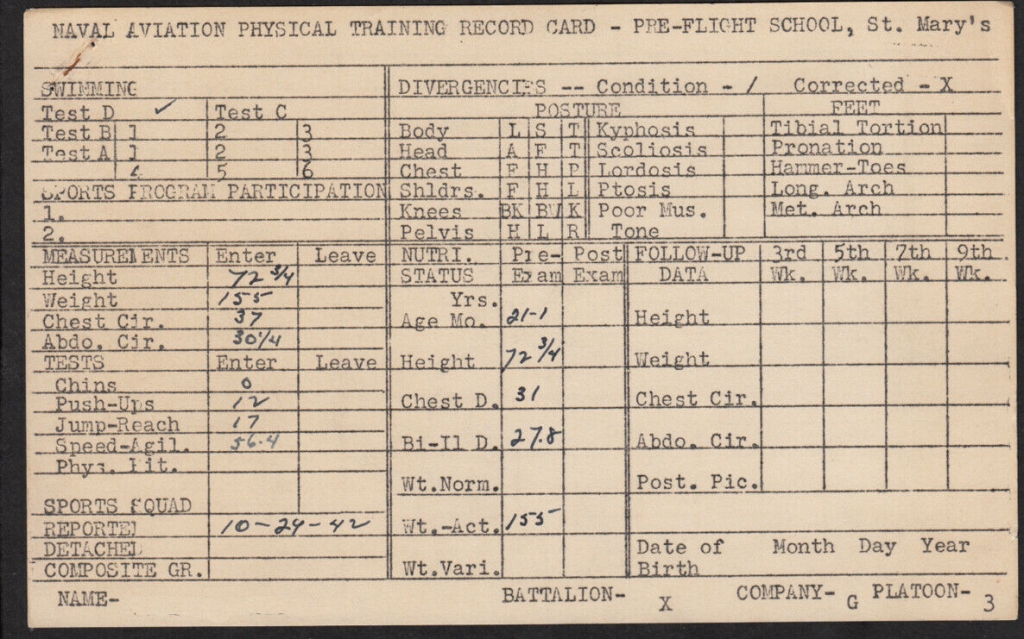 NAVAL AVIATION PHYSICAL TRAINING RECORD CARD - PRE-FLIGHT SCHOOL, St. Mary's
SWIMMING
Test D ✓ Test C
Test B 1 2 3
Test A 1 2 3
4 5 6
SPORTS PROGRAM PARTICIPATION
1.
2.
DIVERGENCIES -- Condition - / Corrected - X
POSTURE FEET
Body L S T Kyphosis Tibial Tortion
Head A F T Scoliosis Pronation
Chest F H P Lordosis Hammer-Toes
Shldrs. F H L Ptosis Long. Arch
Knees BK BW K Poor Mus. Met. Arch
Pelvis H L R Tone
MEASUREMENTS Enter Leave
Height 72 3/4
Weight 155
Chest Cir. 37
Abdo. Cir. 30 1/4
TESTS Enter Leave
Chins 0
Push-Ups 12
Jump-Reach 17
Speed-Agil. 56.4
Phys. Fit.
SPORTS SQUAD
REPORTED 10-24-42
DETACHED
COMPOSITE GR.
NUTRI. Pre- Post
STATUS Exam Exam
Yrs.
Age Mo. 21-1
Height 72 3/4
Chest D. 31
Bi-Il D. 27.8
Wt.Norm.
Wt.-Act. 155
Wt.Vari.
FOLLOW-UP 3rd 5th 7th 9th
DATA Wk. Wk. Wk. Wk.
Height
Weight
Chest Cir.
Abdo. Cir.
Post. Pic.
Date of Month Day Year
Birth
NAME- BATTALION- X COMPANY- G PLATOON- 3